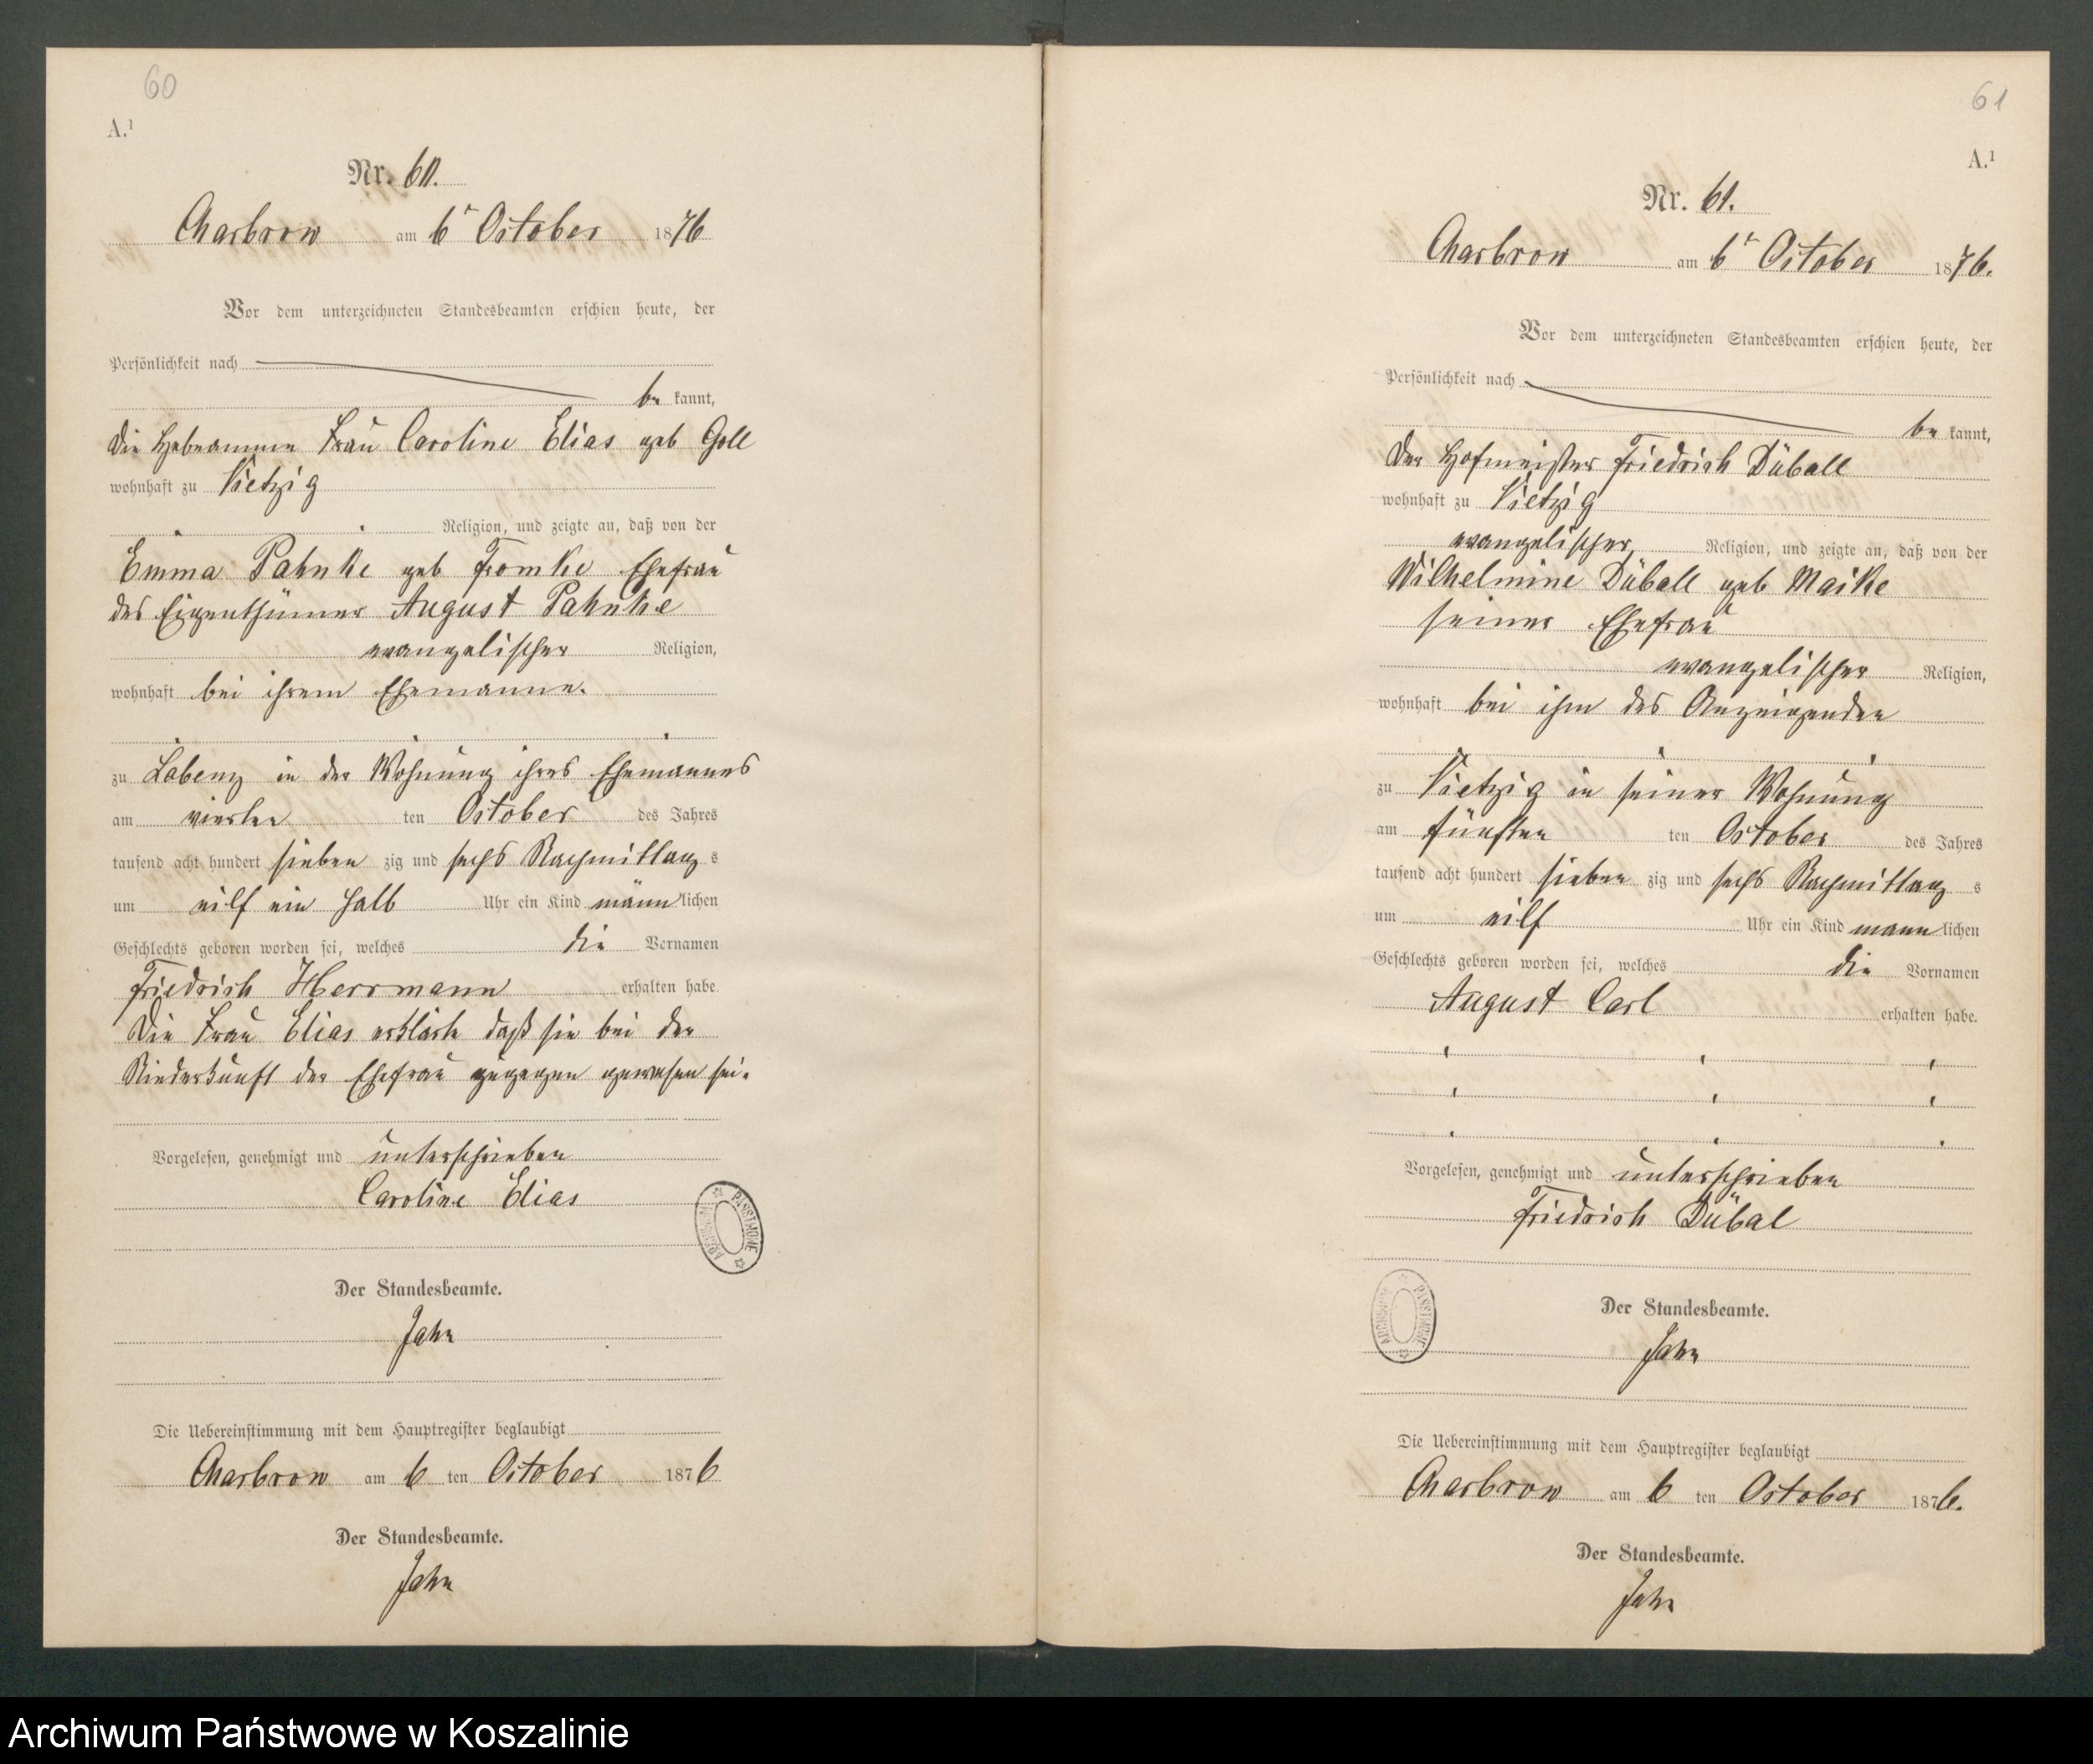 60
A.¹
Nr. 60.
Charbrow am 6ᵗ October 1876
Vor dem unterzeichneten Standesbeamten erschien heute, der
Persönlichkeit nach
be kannt,
die Hebeamme Frau Caroline Elias geb Goll
wohnhaft zu Vietzig
Religion, und zeigte an, daß von der
Emma Pahnke geb Fromke Ehefrau
des Eigenthümer August Pahnke
evangelischer Religion,
wohnhaft bei ihrem Ehemanne.
zu Labenz in der Wohnung ihres Ehemannes
am vierten ten October des Jahres
tausend acht hundert sieben zig und sechs Nachmittag s
um eilf ein halb Uhr ein Kind männ lichen
Geschlechts geboren worden sei, welches die Vornamen
Friedrich Herrmann erhalten habe.
Die Frau Elias erklärte daß sie bei der
Niederkunft der Ehefrau zugegen gewesen sei.
Vorgelesen, genehmigt und unterschrieben
Caroline Elias
ARCHIWUM PAŃSTWOWE
Der Standesbeamte.
Jahn
Die Uebereinstimmung mit dem Hauptregister beglaubigt
Charbrow am 6 ten October 1876
Der Standesbeamte.
Jahn
61
A.¹
Nr. 61.
Charbrow am 6ᵗ October 1876.
Vor dem unterzeichneten Standesbeamten erschien heute, der
Persönlichkeit nach
be kannt,
der Hofmeister Friedrich Düball
wohnhaft zu Vietzig
evangelischer Religion, und zeigte an, daß von der
Wilhelmine Düball geb Maike
seiner Ehefrau
evangelischer Religion,
wohnhaft bei ihm des Anzeigenden
zu Vietzig in seiner Wohnung
am fünften ten October des Jahres
tausend acht hundert sieben zig und sechs Nachmittag s
um eilf Uhr ein Kind mann lichen
Geschlechts geboren worden sei, welches die Vornamen
August Carl erhalten habe.
Vorgelesen, genehmigt und unterschrieben
Friedrich Dübal
ARCHIWUM PAŃSTWOWE
Der Standesbeamte.
Jahn
Die Uebereinstimmung mit dem Hauptregister beglaubigt
Charbrow am 6 ten October 1876.
Der Standesbeamte.
Jahn
Archiwum Państwowe w Koszalinie